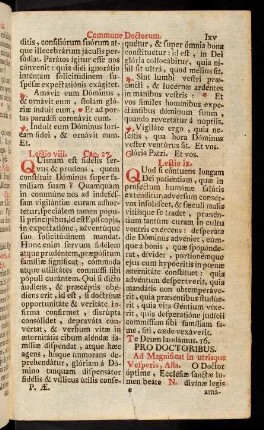 Commune Doctorum. lxv
diciis, consiliorum suorum at-
que illecebrarum jaculis per-
fodiat. Paratos igitur esse nos
convenit: quia diei ignoratio
intentam sollicitudinem su-
spensæ expectationis exagitat.
Amavit eum Dominus,
& ornavit eum, stolam glo-
riæ induit eum, * Et ad por-
tas paradisi coronavit eum.
Induit eum Dominus lori-
cam fidei, & ornavit eum.
Et.
Lectio viij. Cap. 27.
Quisnam est fidelis ser-
vus & prudens, quem
constituit Dominus super
familiam suam? Quamquam
in commune nos ad indefes-
sam vigilantiæ curam adhor-
tetur, specialem tamen populi
principibus, id est Episcopis,
in expectatione, adventuque
suo sollicitudinem mandat.
Hunc enim servum fidelem
atque prudentem, præpositum
familiæ significat, commoda
atque utilitates commissi sibi
populi curantem. Qui si dicto
audiens, & præceptis obe-
diens erit, id est, si doctrinæ
opportunitate & veritate in-
firma confirmet, disrupta
consolidet, depravata con-
vertat, & verbum vitæ in
æternitatis cibum alendæ fa-
miliæ dispendat, atque hæc
agens, hisque immorans de-
prehendatur, gloriam à Do-
mino tanquam dispensator
fidelis & villicus utilis conse-
P. Æ.
quetur, & super omnia bona
constituetur: id est, in Dei
gloria collocabitur, quia ni-
hil sit ultra, quod melius sit.
Sint lumbi vestri præ-
cincti, & lucernæ ardentes
in manibus vestris: * Et
vos similes hominibus expe-
ctantibus dominum suum,
quando revertatur à nuptiis.
Vigilate ergo, quia ne-
scitis, qua hora Dominus
vester venturus sit. Et vos.
Gloria Patri. Et vos.
Lectio ix.
Quod si contuens longam
Dei patientiam, quæ in
profectum humanæ salutis
extenditur, adversum conser-
vos insolescet, & sæculi malis
vitiisque se tradet, præsen-
tium tantum curam in cultu
ventris exercens: desperatâ
die Dominus adveniet, eum-
que à bonis, quæ spoponde-
rat, dividet, portionemque
ejus cum hypocritis in pœnæ
æternitate constituet: quia
adventum desperaverit, quia
mandatis non obtemperave-
rit, quia præsentibus studue-
rit, quia vita Gentium vixe-
rit, quia desperatione judicii
commissam sibi familiam fa-
me, siti, cæde vexaverit.
Te Deum laudamus. 16.
PRO DOCTORIBUS.
Ad Magnificat in utrisque
Vesperis, Aña. O Doctor
optime, Ecclesiæ sanctæ lu-
men beate N. divinæ legis
e
ama-